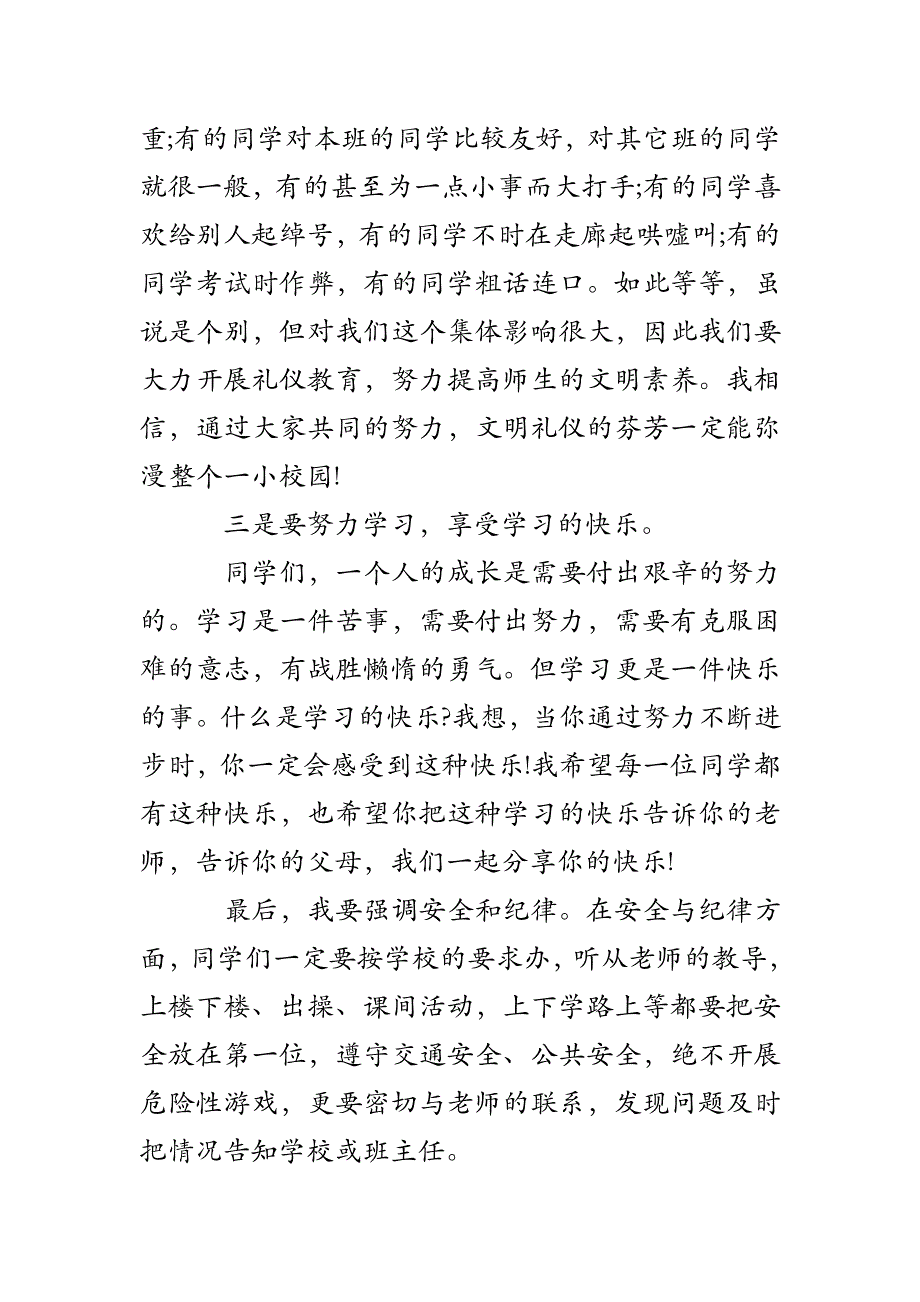 重;有的同学对本班的同学比较友好，对其它班的同学
就很一般，有的甚至为一点小事而大打手;有的同学喜
欢给别人起绰号，有的同学不时在走廊起哄嘘叫;有的
同学考试时作弊，有的同学粗话连口。如此等等，虽
说是个别，但对我们这个集体影响很大，因此我们要
大力开展礼仪教育，努力提高师生的文明素养。我相
信，通过大家共同的努力，文明礼仪的芬芳一定能弥
漫整个一小校园!
三是要努力学习，享受学习的快乐。
同学们，一个人的成长是需要付出艰辛的努力
的。学习是一件苦事，需要付出努力，需要有克服困
难的意志，有战胜懒惰的勇气。但学习更是一件快乐
的事。什么是学习的快乐?我想，当你通过努力不断进
步时，你一定会感受到这种快乐!我希望每一位同学都
有这种快乐，也希望你把这种学习的快乐告诉你的老
师，告诉你的父母，我们一起分享你的快乐!
最后，我要强调安全和纪律。在安全与纪律方
面，同学们一定要按学校的要求办，听从老师的教导，
上楼下楼、出操、课间活动，上下学路上等都要把安
全放在第一位，遵守交通安全、公共安全，绝不开展
危险性游戏，更要密切与老师的联系，发现问题及时
把情况告知学校或班主任。